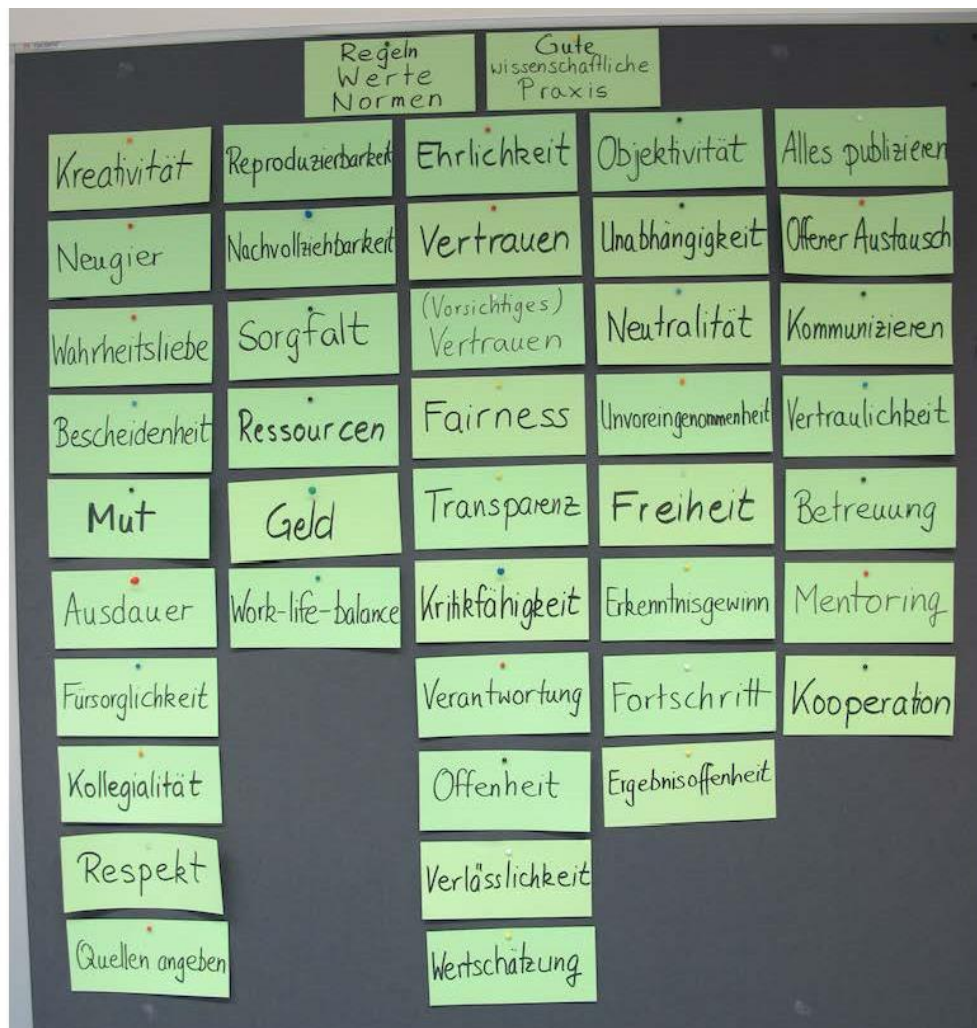 Regeln
Werte
Normen
Gute
wissenschaftliche
Praxis
Kreativität
Neugier
Wahrheitsliebe
Bescheidenheit
Mut
Ausdauer
Fürsorglichkeit
Kollegialität
Respekt
Quellen angeben
Reproduzierbarkeit
Nachvollziehbarkeit
Sorgfalt
Ressourcen
Geld
Work-life-balance
Ehrlichkeit
Vertrauen
(Vorsichtiges)
Vertrauen
Fairness
Transparenz
Kritikfähigkeit
Verantwortung
Offenheit
Verlässlichkeit
Wertschätzung
Objektivität
Unabhängigkeit
Neutralität
Unvoreingenommenheit
Freiheit
Erkenntnisgewinn
Fortschritt
Ergebnisoffenheit
Alles publizieren
Offener Austausch
Kommunizieren
Vertraulichkeit
Betreuung
Mentoring
Kooperation